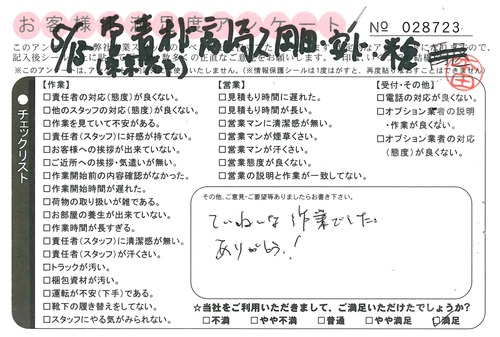 お客様満足度アンケート
No 028723
チェックリスト
【作業】
□責任者の対応(態度)が良くない。
□他のスタッフの対応(態度)が良くない。
□作業を見ていて不安がある。
□責任者(スタッフ)に好感が持てない。
□お客様への挨拶が出来ていない。
□ご近所への挨拶・気遣いが無い。
□作業開始前の内容確認がなかった。
□作業開始時間が遅れた。
□荷物の取り扱いが雑である。
□お部屋の養生が出来ていない。
□作業時間が長すぎる。
□責任者(スタッフ)に清潔感が無い。
□責任者(スタッフ)が汗くさい。
□トラックが汚い。
□梱包資材が汚い。
□運転が不安(下手)である。
□靴下の履き替えをしてない。
□スタッフにやる気がみられない。
【営業】
□見積もり時間に遅れた。
□見積もり時間が長い。
□営業マンに清潔感が無い。
□営業マンが煙草くさい。
□営業マンが汗くさい。
□営業態度が良くない。
□営業の説明と作業が一致してない。
【受付・その他】
□電話の対応が良くない。
□オプション業者の説明
・作業が良くない。
□オプション業者の対応
(態度)が良くない。
その他、ご意見・ご要望等ありましたらお書き下さい。
ていねいな作業でした。
ありがとう!
☆当社をご利用いただきまして、ご満足いただけたでしょうか?
□不満 □やや不満 □普通 □やや満足 □満足